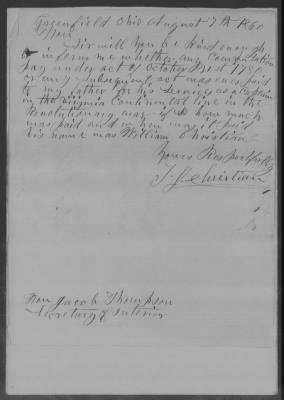 Greenfield Ohio August 7th 1860
Sir will you be kind enough
to inform me whether any Commutation
Pay under act of October 21st 1780
or any subsequent act was ever paid
to my father for his services as a captain
in the Virginia Continental line in the
Revolutionary war if so how much
was paid and to whom was it paid
his name was William Christian
Yours Respectfully
Christian
Hon Jacob Thompson
Secretary of Interior